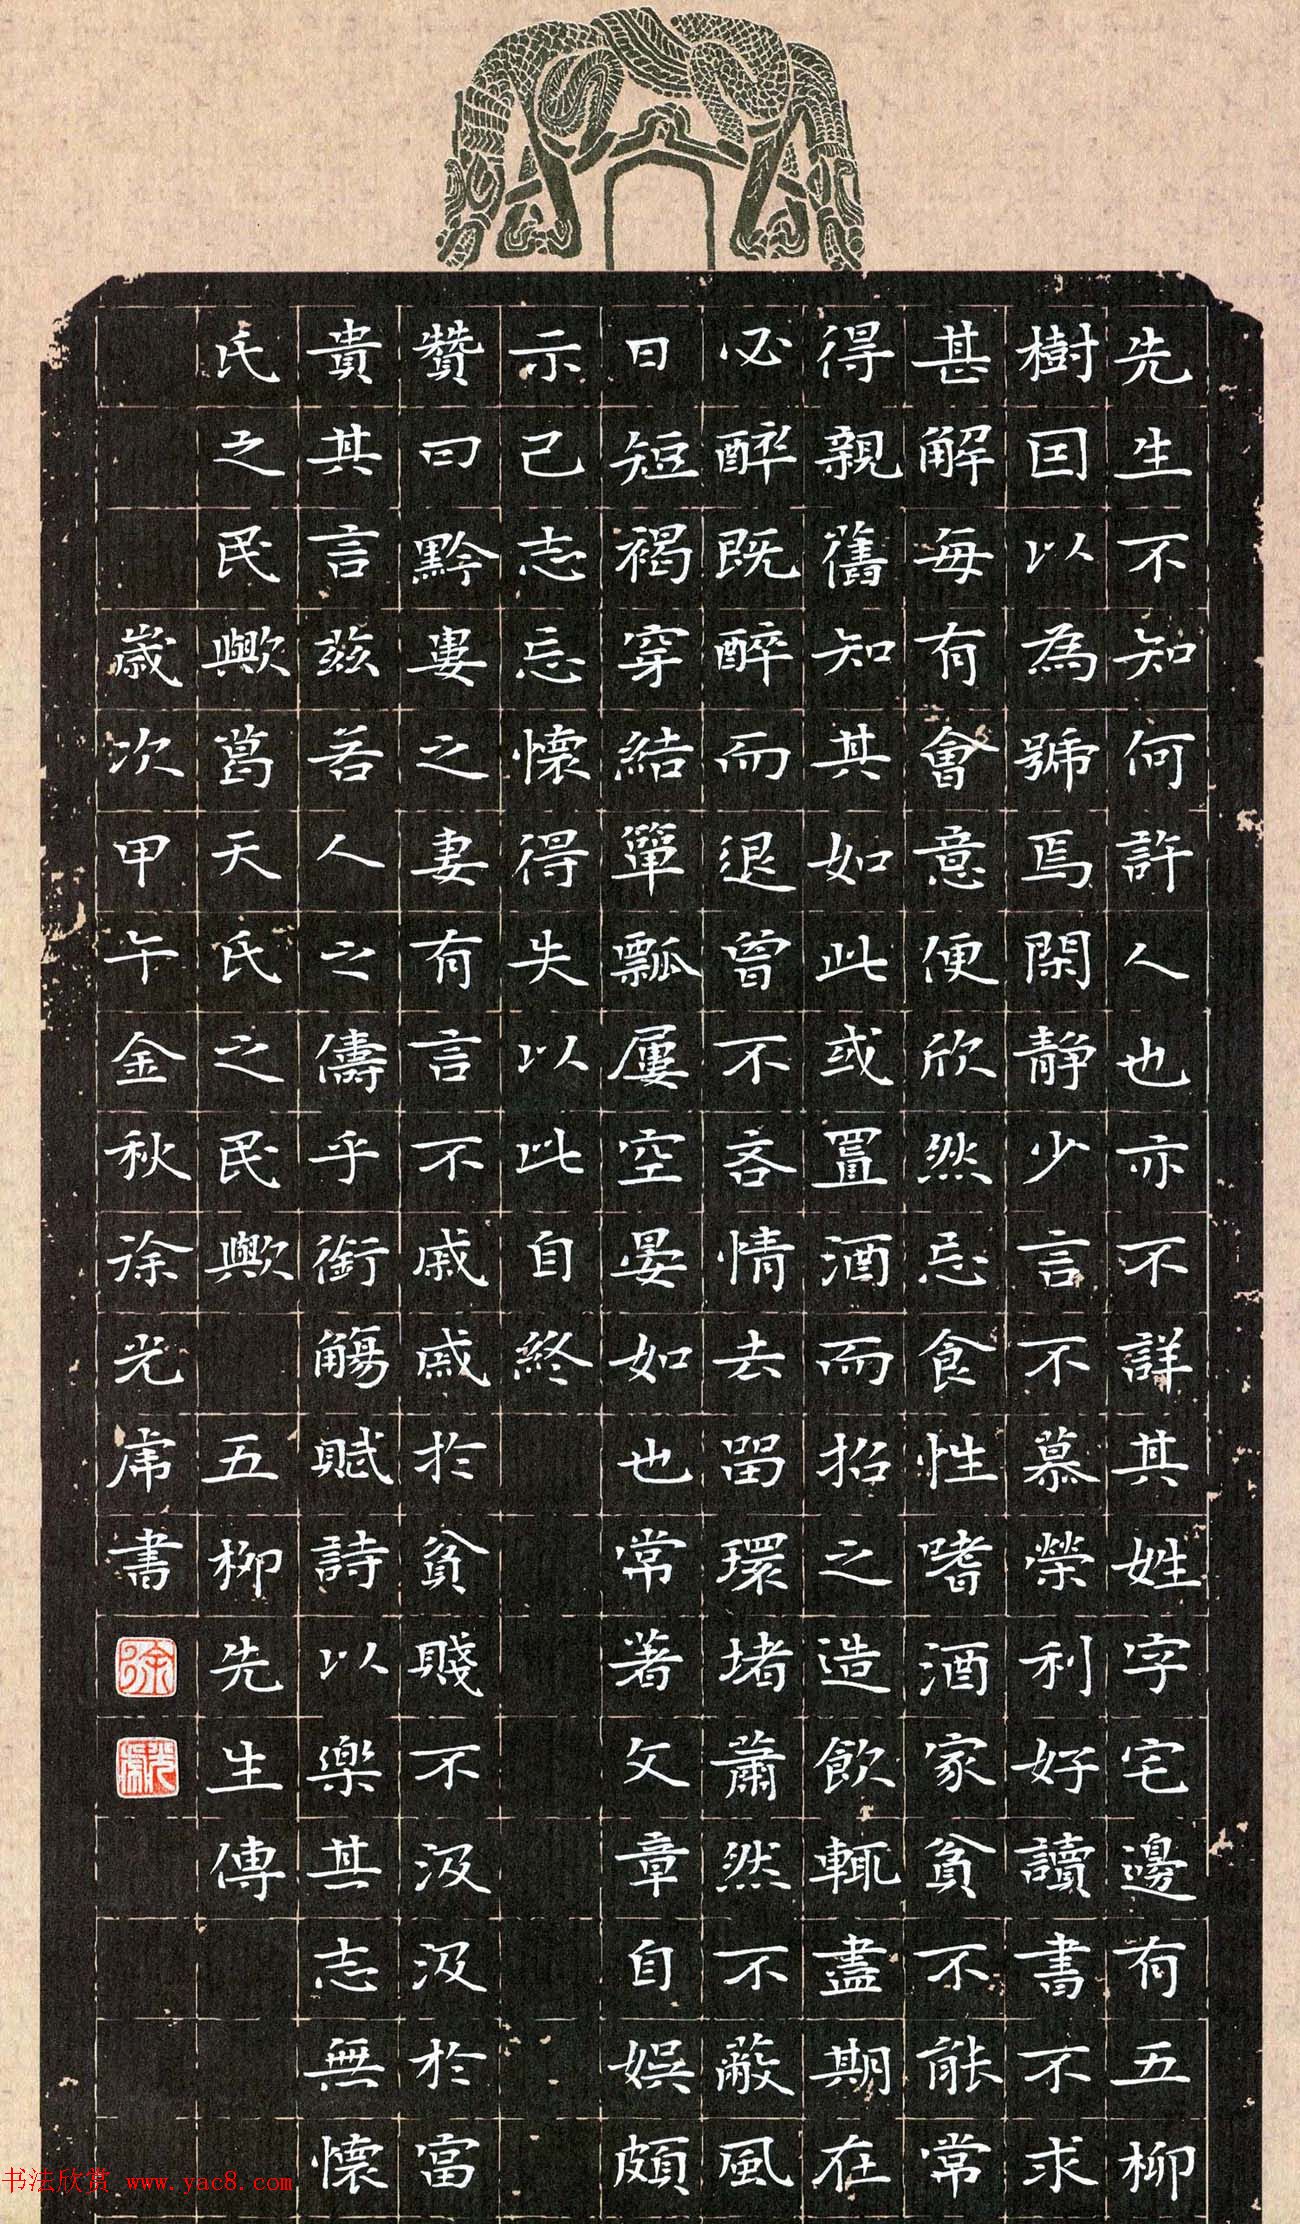 先生不知何許人也亦不詳其姓字宅邊有五柳
樹囙以為號焉閑静少言不慕榮利好讀書不求
甚解每有會意便欣然忘食性嗜酒家貧不能常
得親舊知其如此或置酒而招之造飲輒盡期在
必醉既醉而退曾不吝情去留環堵蕭然不蔽風
日短褐穿結簞瓢屢空晏如也常著文章自娛頗
示己志忘懷得失以此自終
贊曰黔婁之妻有言不戚戚於貧賤不汲汲於富
貴其言茲若人之儔乎銜觴賦詩以樂其志無懷
氏之民歟葛天氏之民歟 五柳先生傳
歲次甲午金秋徐光虎書
徐
光虎
书法欣赏 www.yac8.com